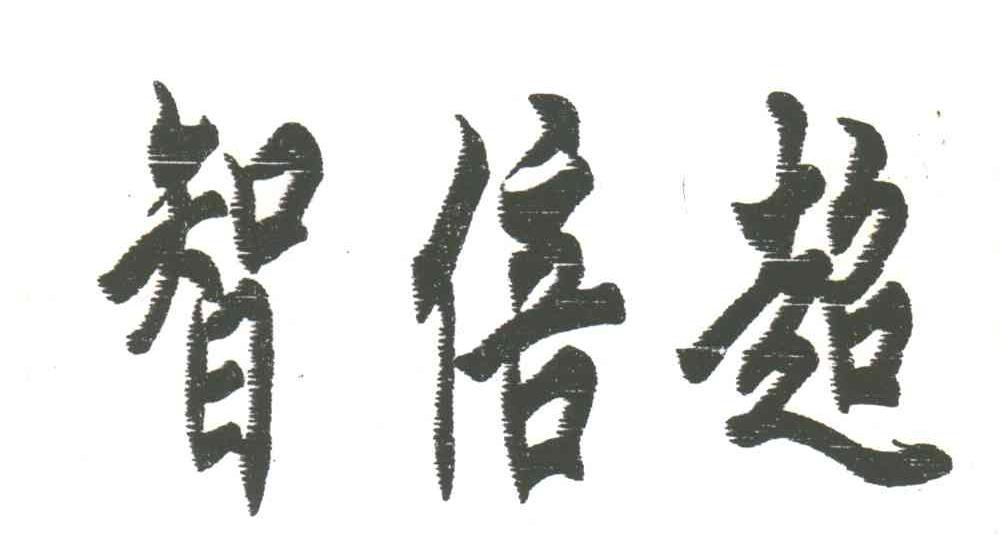 智倍超